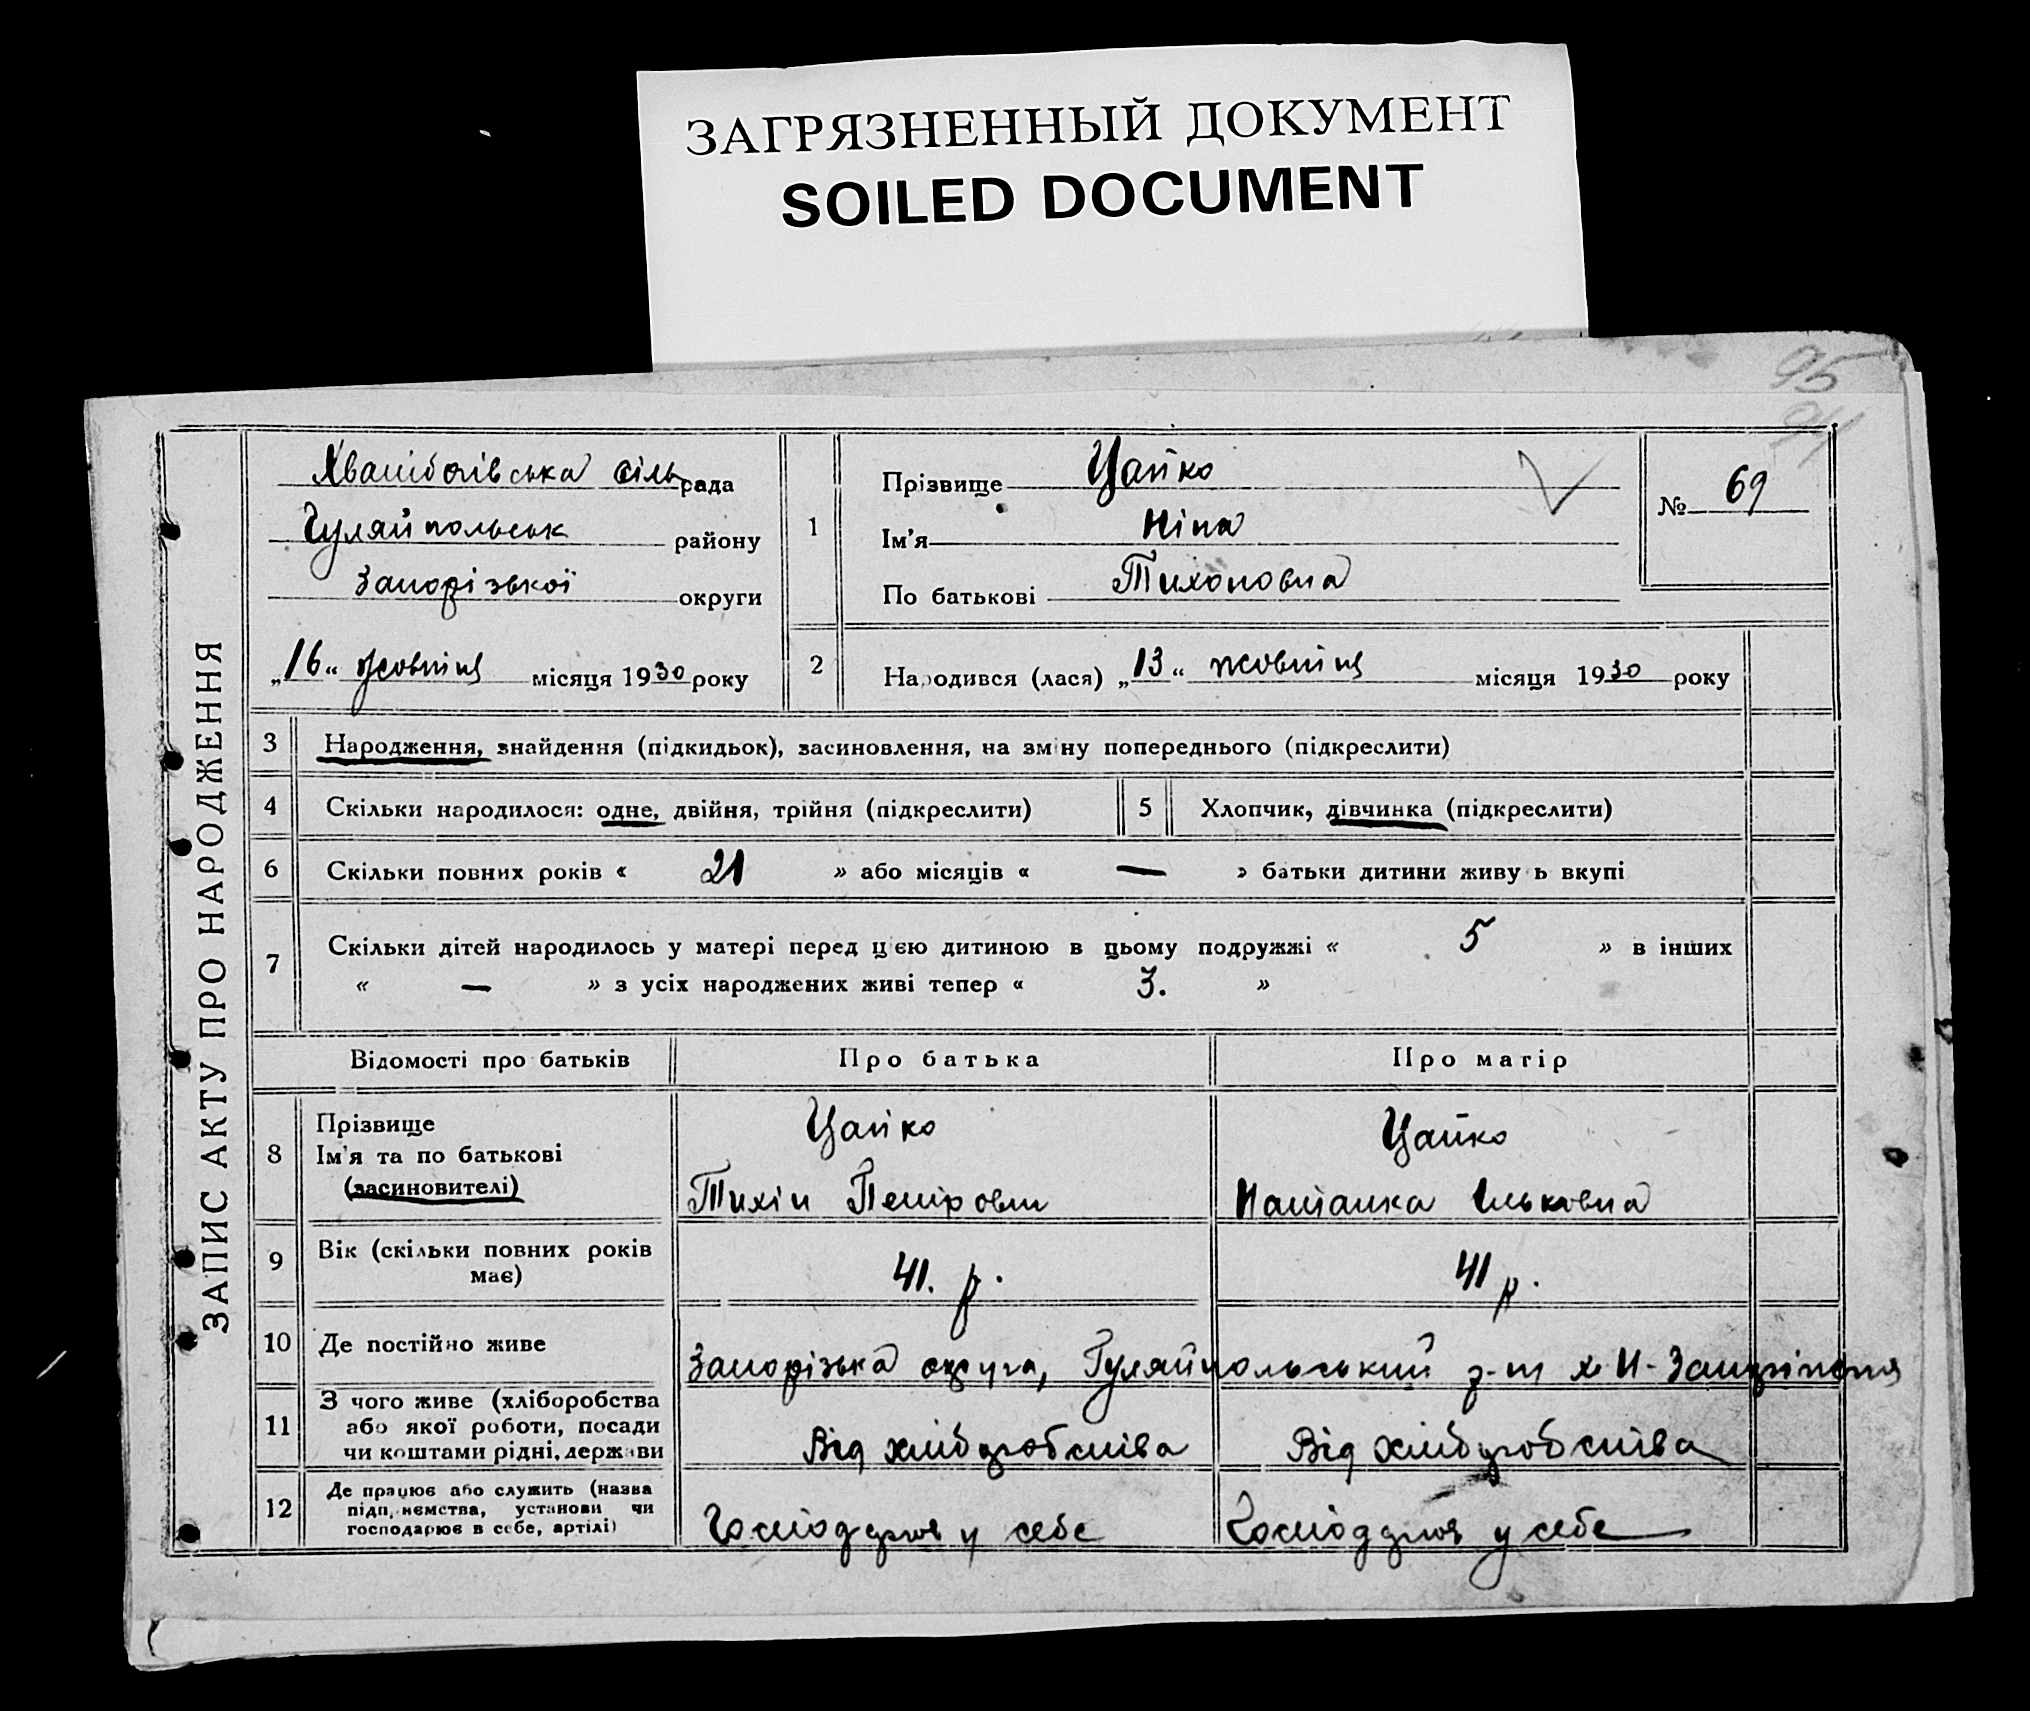 ЗАГРЯЗНЕННЫЙ ДОКУМЕНТ
SOILED DOCUMENT
95
94
ЗАПИС АКТУ ПРО НАРОДЖЕННЯ
сільрада
Гуляйпольськ району
Запорізької округи
„16“ жовтня місяця 1930 року
1
Прізвище Цапко
Ім'я Ніна
По батькові Тихоновна
№ 69
2
Народився (лася) „13“ жовтня місяця 1930 року
3 Народження, знайдення (підкидьок), засиновлення, на зміну попереднього (підкреслити)
4 Скільки народилося: одне, двійня, трійня (підкреслити) 5 Хлопчик, дівчинка (підкреслити)
6 Скільки повних років « 21 » або місяців « — » батьки дитини живуть вкупі
7 Скільки дітей народилось у матері перед цією дитиною в цьому подружжі « 5 » в інших
« — » з усіх народжених живі тепер « 3. »
Відомості про батьків Про батька Про матір
8 Прізвище
Ім'я та по батькові
(засиновителі)
Цапко
Тихін Петрович
Цапко
Наталка Ільковна
9 Вік (скільки повних років
має)
41. р.
41 р.
10 Де постійно живе
Запорізька округа, Гуляйпольський р-н х Н-
11 З чого живе (хліборобства
або якої роботи, посади
чи коштами рідні, держави
Від хліборобства
Від хліборобства
12 Де працює або служить (назва
підприємства, установи чи
господарює в себе, артілі)
Господарює у себе
Господарює у себе